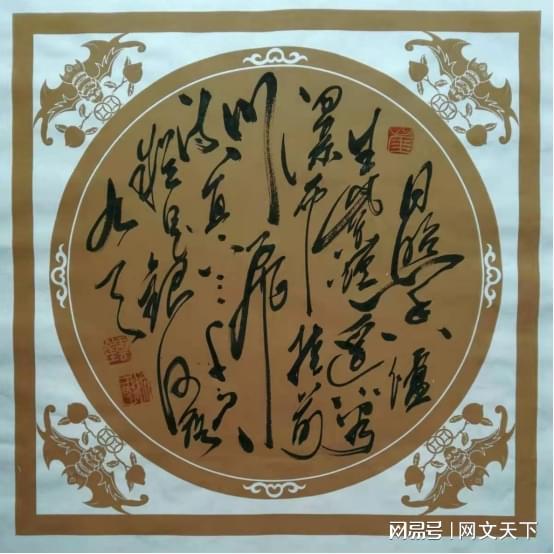 日照香爐
生紫煙遥看
瀑布挂前
川飛
流直下三千尺
疑是銀河落
九天
网易号 | 网文天下